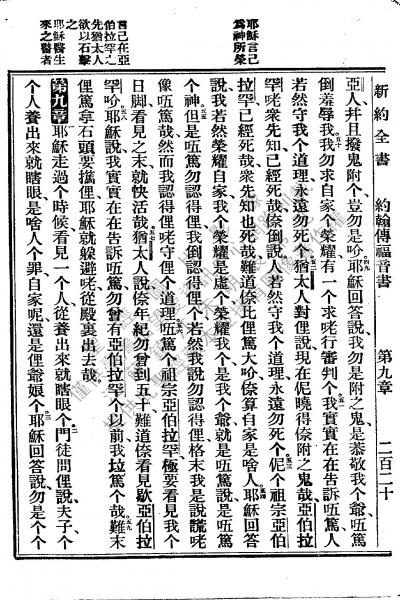 新約全書　約翰傳福音書　第九章　二百二十
耶穌言己
為神所榮
言己在亞
伯拉罕之
先猶太人
欲以石擊
之
耶穌醫生
來之瞽者
亞人并且撥鬼附个豈勿是吤耶穌回答說我勿是附之鬼是恭敬我个爺唔篤
倒羞辱我我勿求自家个榮耀有一个求咾行審判个我實實在在告訴唔篤人
若然守我个道理永遠勿死个猶太人對俚說現在伲曉得倷附之鬼哉亞伯拉
罕咾衆先知已經死哉倷倒說人若然守我个道理永遠勿死个伲个祖宗亞伯
拉罕已經死哉衆先知也死哉難道倷比俚篤大哈倷算自家是啥人耶穌回答
說我若然榮耀自家我个榮耀是虛个榮耀我个是我个爺就是唔篤說是唔篤
个神但是唔篤勿認得俚我倒認得俚个若然我說勿認得俚格末我是說謊咾
像唔篤哉然而我認得俚咾守俚个道理唔篤个祖宗亞伯拉罕極要看見我个
日脚看見之末就快活哉猶太人說倷年紀勿曾到五十難道倷看見歇亞伯拉
罕吤耶穌說我實實在在告訴唔篤勿曾有亞伯拉罕个以前我垃篤个哉難末
俚篤拿石頭要攟俚耶穌就躲避咾從殿裏出去哉
第九章耶穌走過个時候看見一个人從養出來就瞎眼个門徒問俚說夫子个
个人養出來就瞎眼是啥人个罪自家呢還是俚爺娘个耶穌回答說勿是个个